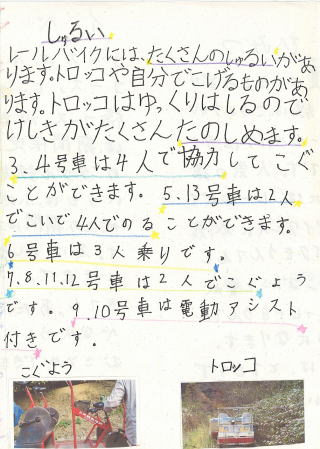 しゅるい
レールバイクには、たくさんのしゅるいがあ
ります。トロッコや自分でこげるものがあ
ります。トロッコはゆっくりはしるので
けしきがたくさんたのしめます。
3.4号車は4人で協力してこぐ
ことができます。5.13号車は2人
でこいで4人でのることができます。
6号車は3人乗りです。
7.8.11.12号車は2人でこぐよう
です。9.10号車は電動アシスト
付きです。
こぐよう
トロッコ